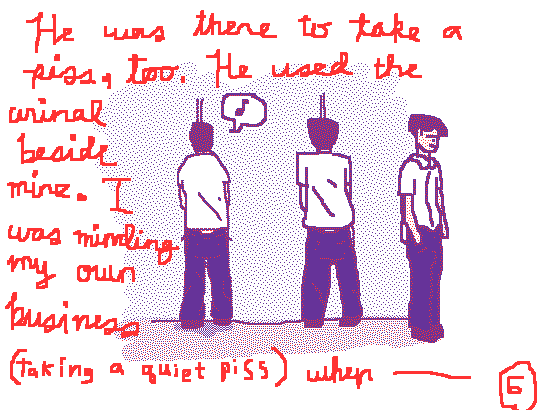 He was there to take a
piss, too. He used the
urinal
beside
mine. I
was minding
my own
business
(taking a quiet piss) when ——
6